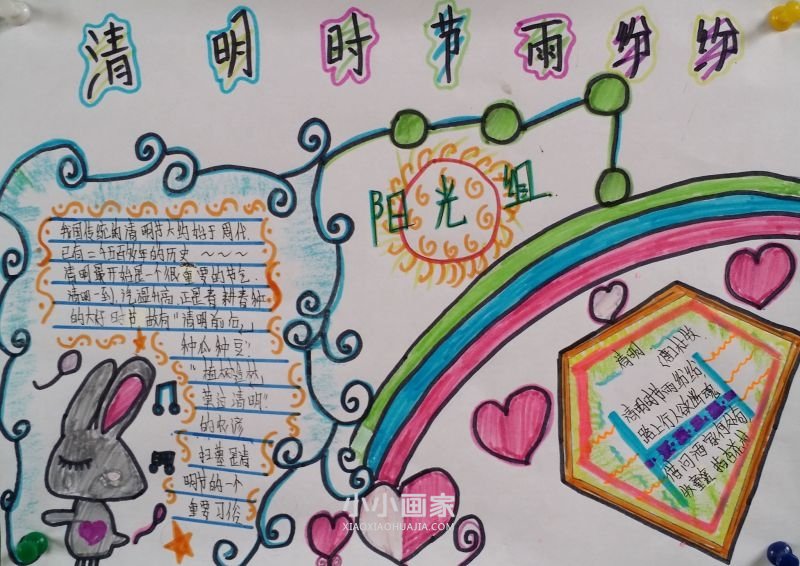 清明时节雨纷纷
阳光组
我国传统的清明节大约始于周代
已有二千五百多年的历史~~~
清明最开始是一个很重要的节气
清明一到,气温升高,正是春耕春种
的大好时节,故有“清明前后,
种瓜种豆”
“植树造林,
莫过清明”
的农谚
扫墓是清
明节的一个
重要习俗
清明
(唐)杜牧
清明时节雨纷纷
路上行人欲断魂
借问酒家何处有
牧童遥指杏花村
小小画家
XIAOXIAOHUAJIA.COM